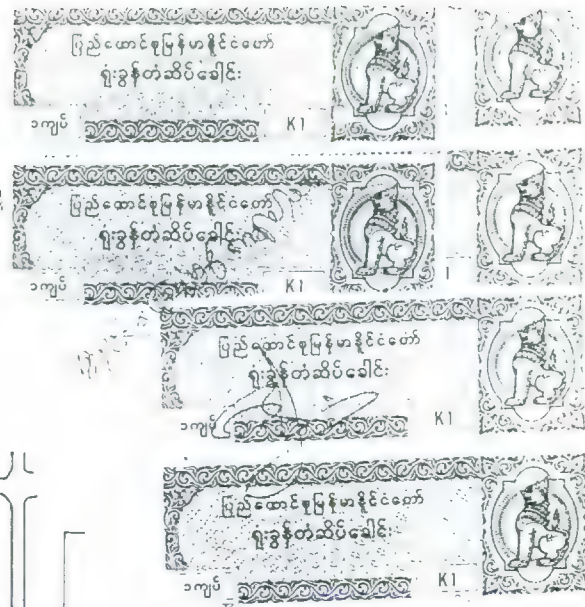 ပြည်ထောင်စုမြန်မာနိုင်ငံတော်
ရုံးခွန်တံဆိပ်ခေါင်း
၁ကျပ် K1
ပြည်ထောင်စုမြန်မာနိုင်ငံတော်
ရုံးခွန်တံဆိပ်ခေါင်း
၁ကျပ် K1
ပြည်ထောင်စုမြန်မာနိုင်ငံတော်
ရုံးခွန်တံဆိပ်ခေါင်း
၁ကျပ် K1
ပြည်ထောင်စုမြန်မာနိုင်ငံတော်
ရုံးခွန်တံဆိပ်ခေါင်း
၁ကျပ် K1